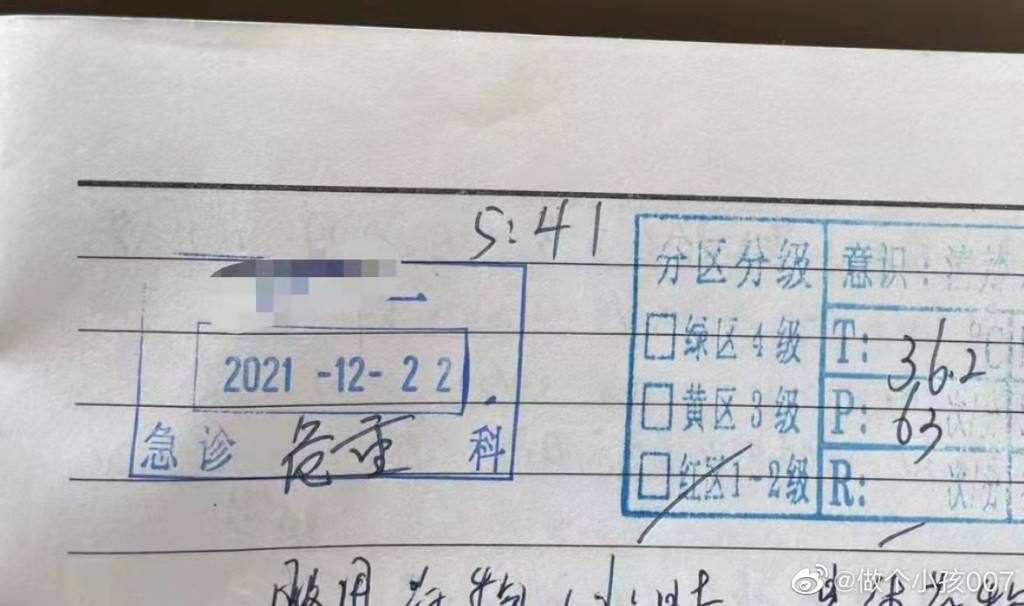 5:41
分区分级 意识:清楚
2021-12-22
绿区4级 T: 36.2 ℃
黄区3级 P: 63 次/分
急诊 危重 科
红区1-2级 R: 次/分
服用药物
@做个小孩007